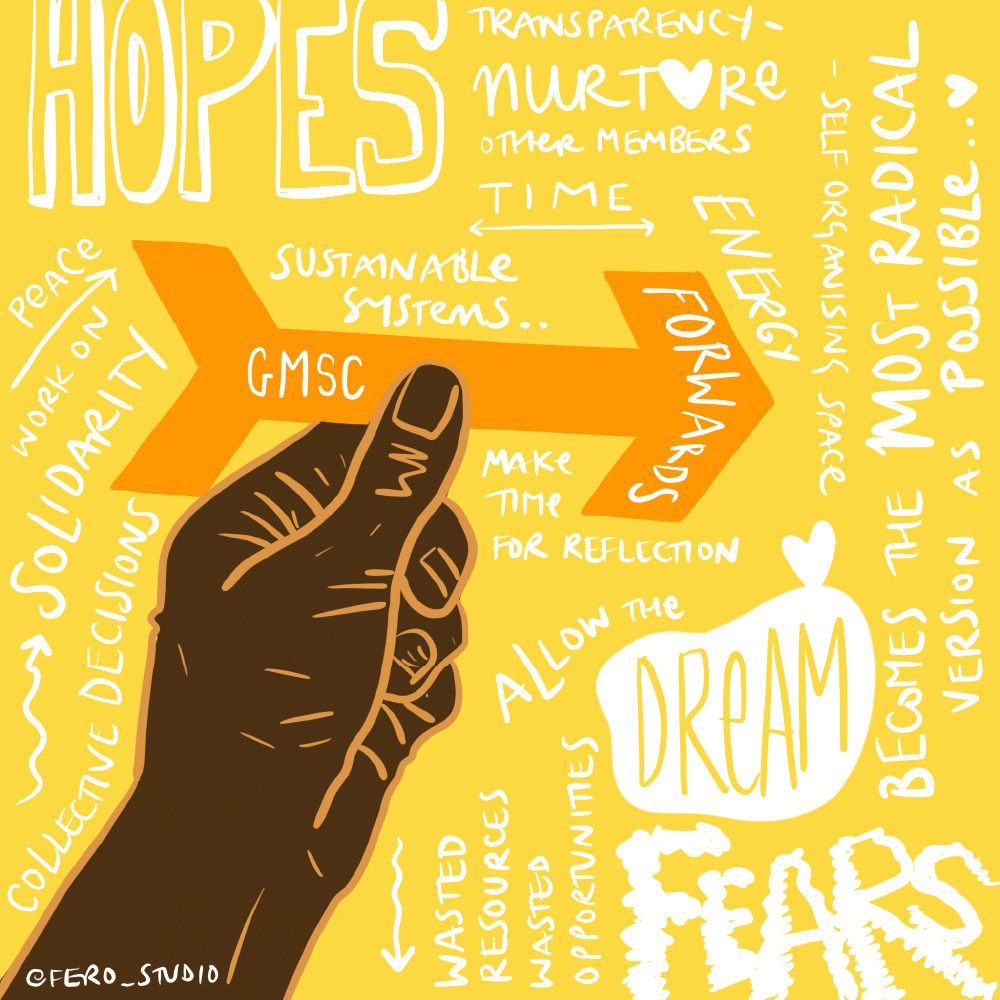 HOPES
TRANSPARENCY -
NURTURE
OTHER MEMBERS
TIME
ENERGY
- SELF ORGANISING SPACE
BECOMES THE MOST RADICAL
VERSION AS POSSIBLE..
PEACE
WORK ON
SOLIDARITY
COLLECTIVE DECISIONS
SUSTAINABLE
SYSTEMS..
GMSC
FORWARDS
MAKE
TIME
FOR REFLECTION
ALLOW THE
DREAM
WASTED
RESOURCES
WASTED
OPPORTUNITIES
FEARS
@FERO_STUDIO